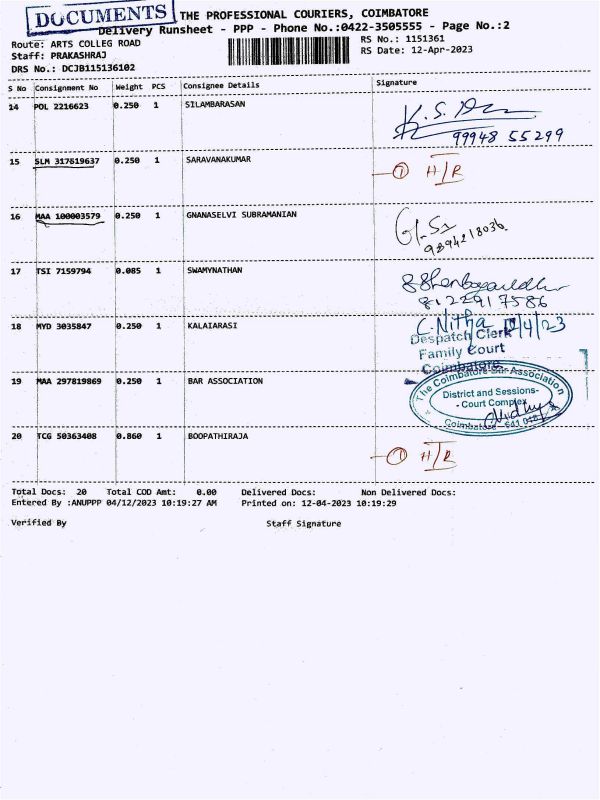 DOCUMENTS
THE PROFESSIONAL COURIERS, COIMBATORE
Delivery Runsheet - PPP - Phone No.:0422-3505555 - Page No.:2
Route: ARTS COLLEG ROAD
RS No.: 1151361
Staff: PRAKASHRAJ
RS Date: 12-Apr-2023
DRS No.: DCJB115136102
S No Consignment No Weight PCS Consignee Details Signature
14 POL 2216623 0.250 1 SILAMBARASAN
K.S.
99948 55299
15 SLM 317619637 0.250 1 SARAVANAKUMAR
1 H/R
16 MAA 100003579 0.250 1 GNANASELVI SUBRAMANIAN
G.S
9894218036
17 TSI 7159794 0.085 1 SWAMYNATHAN
8122917586
18 MYD 3035847 0.250 1 KALAIARASI
C.Nitha 12/4/23
Despatch Clerk
Family Court
Coimbatore
19 MAA 297819869 0.250 1 BAR ASSOCIATION
The Coimbatore Bar Association
District and Sessions-
- Court Complex
Coimbatore - 641 018
20 TCG 50363408 0.860 1 BOOPATHIRAJA
1 H/R
Total Docs: 20 Total COD Amt: 0.00 Delivered Docs: Non Delivered Docs:
Entered By :ANUPPP 04/12/2023 10:19:27 AM Printed on: 12-04-2023 10:19:29
Verified By Staff Signature